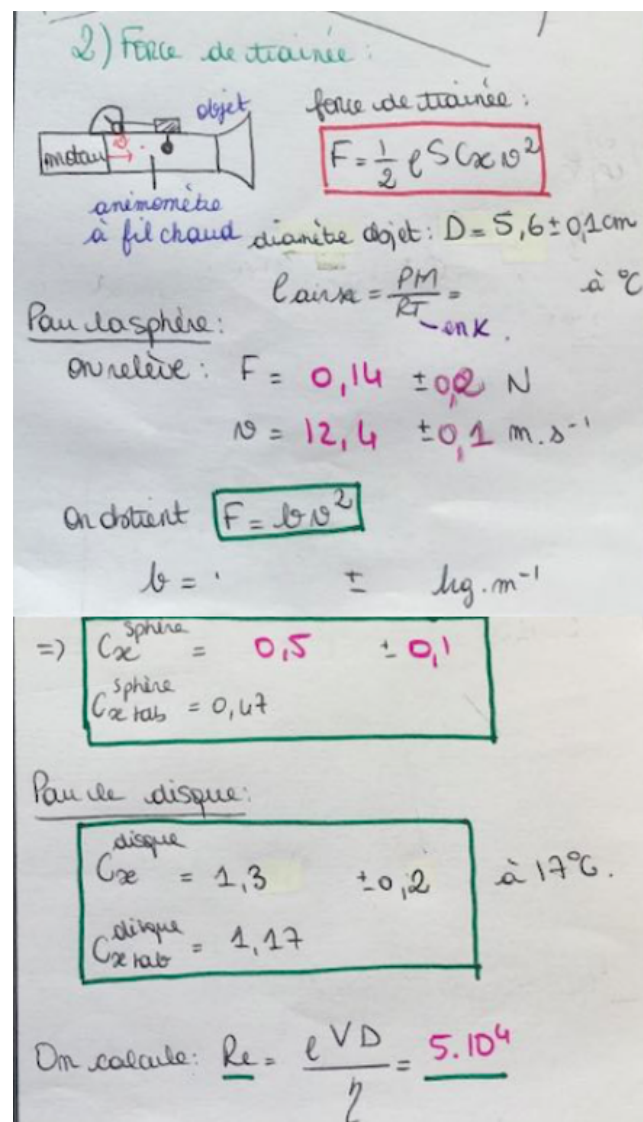 2) Force de trainée :
objet
moteur
anémomètre
à fil chaud
force de trainée :
F = 1/2 ρ S Cx v²
diamètre objet : D = 5,6 ± 0,1 cm
ρair sec = PM/RT = à °C
en K.
Pour la sphère :
on relève : F = 0,14 ± 0,02 N
v = 12,4 ± 0,1 m.s⁻¹
On obtient F = bv²
b = ± kg.m⁻¹
=> Cx sphère = 0,5 ± 0,1
Cx tab sphère = 0,47
Pour le disque :
Cx disque = 1,3 ± 0,2 à 17°C.
Cx tab disque = 1,17
On calcule : Re = ρVD/η = 5.10⁴